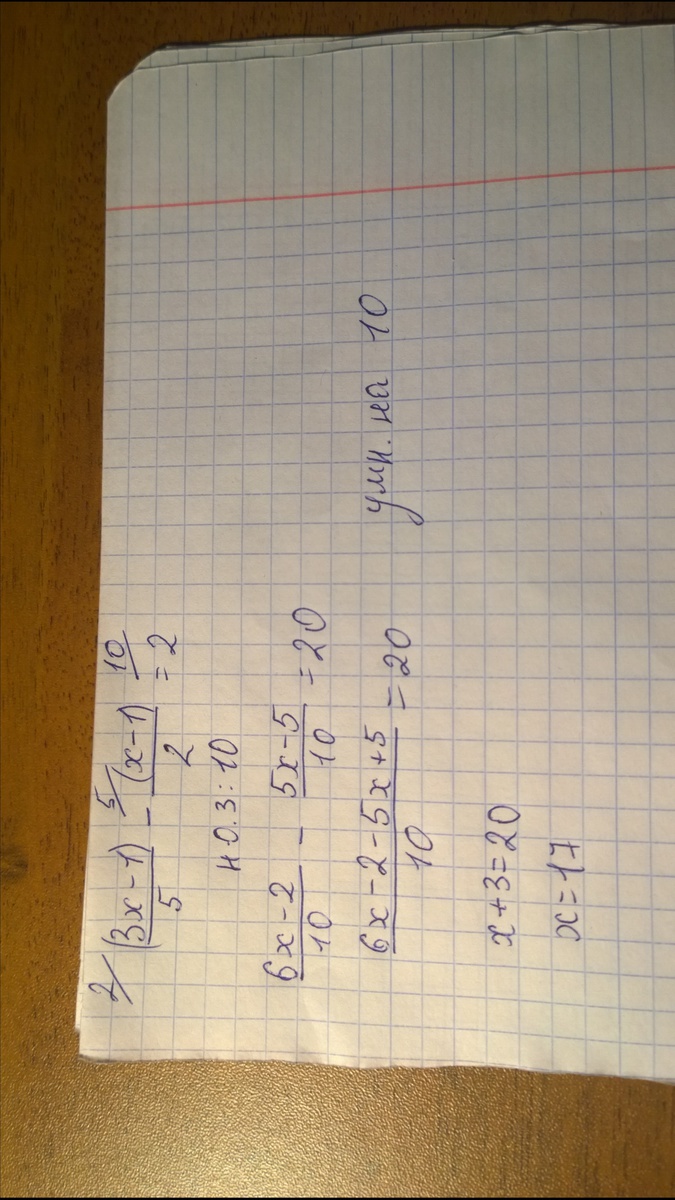 2/ (3x-1)/5 - 5/ (x-1)/2 = 2 10/
н.о.з: 10
(6x-2)/10 - (5x-5)/10 = 20
(6x-2-5x+5)/10 = 20 умн. на 10
x+3=20
x=17